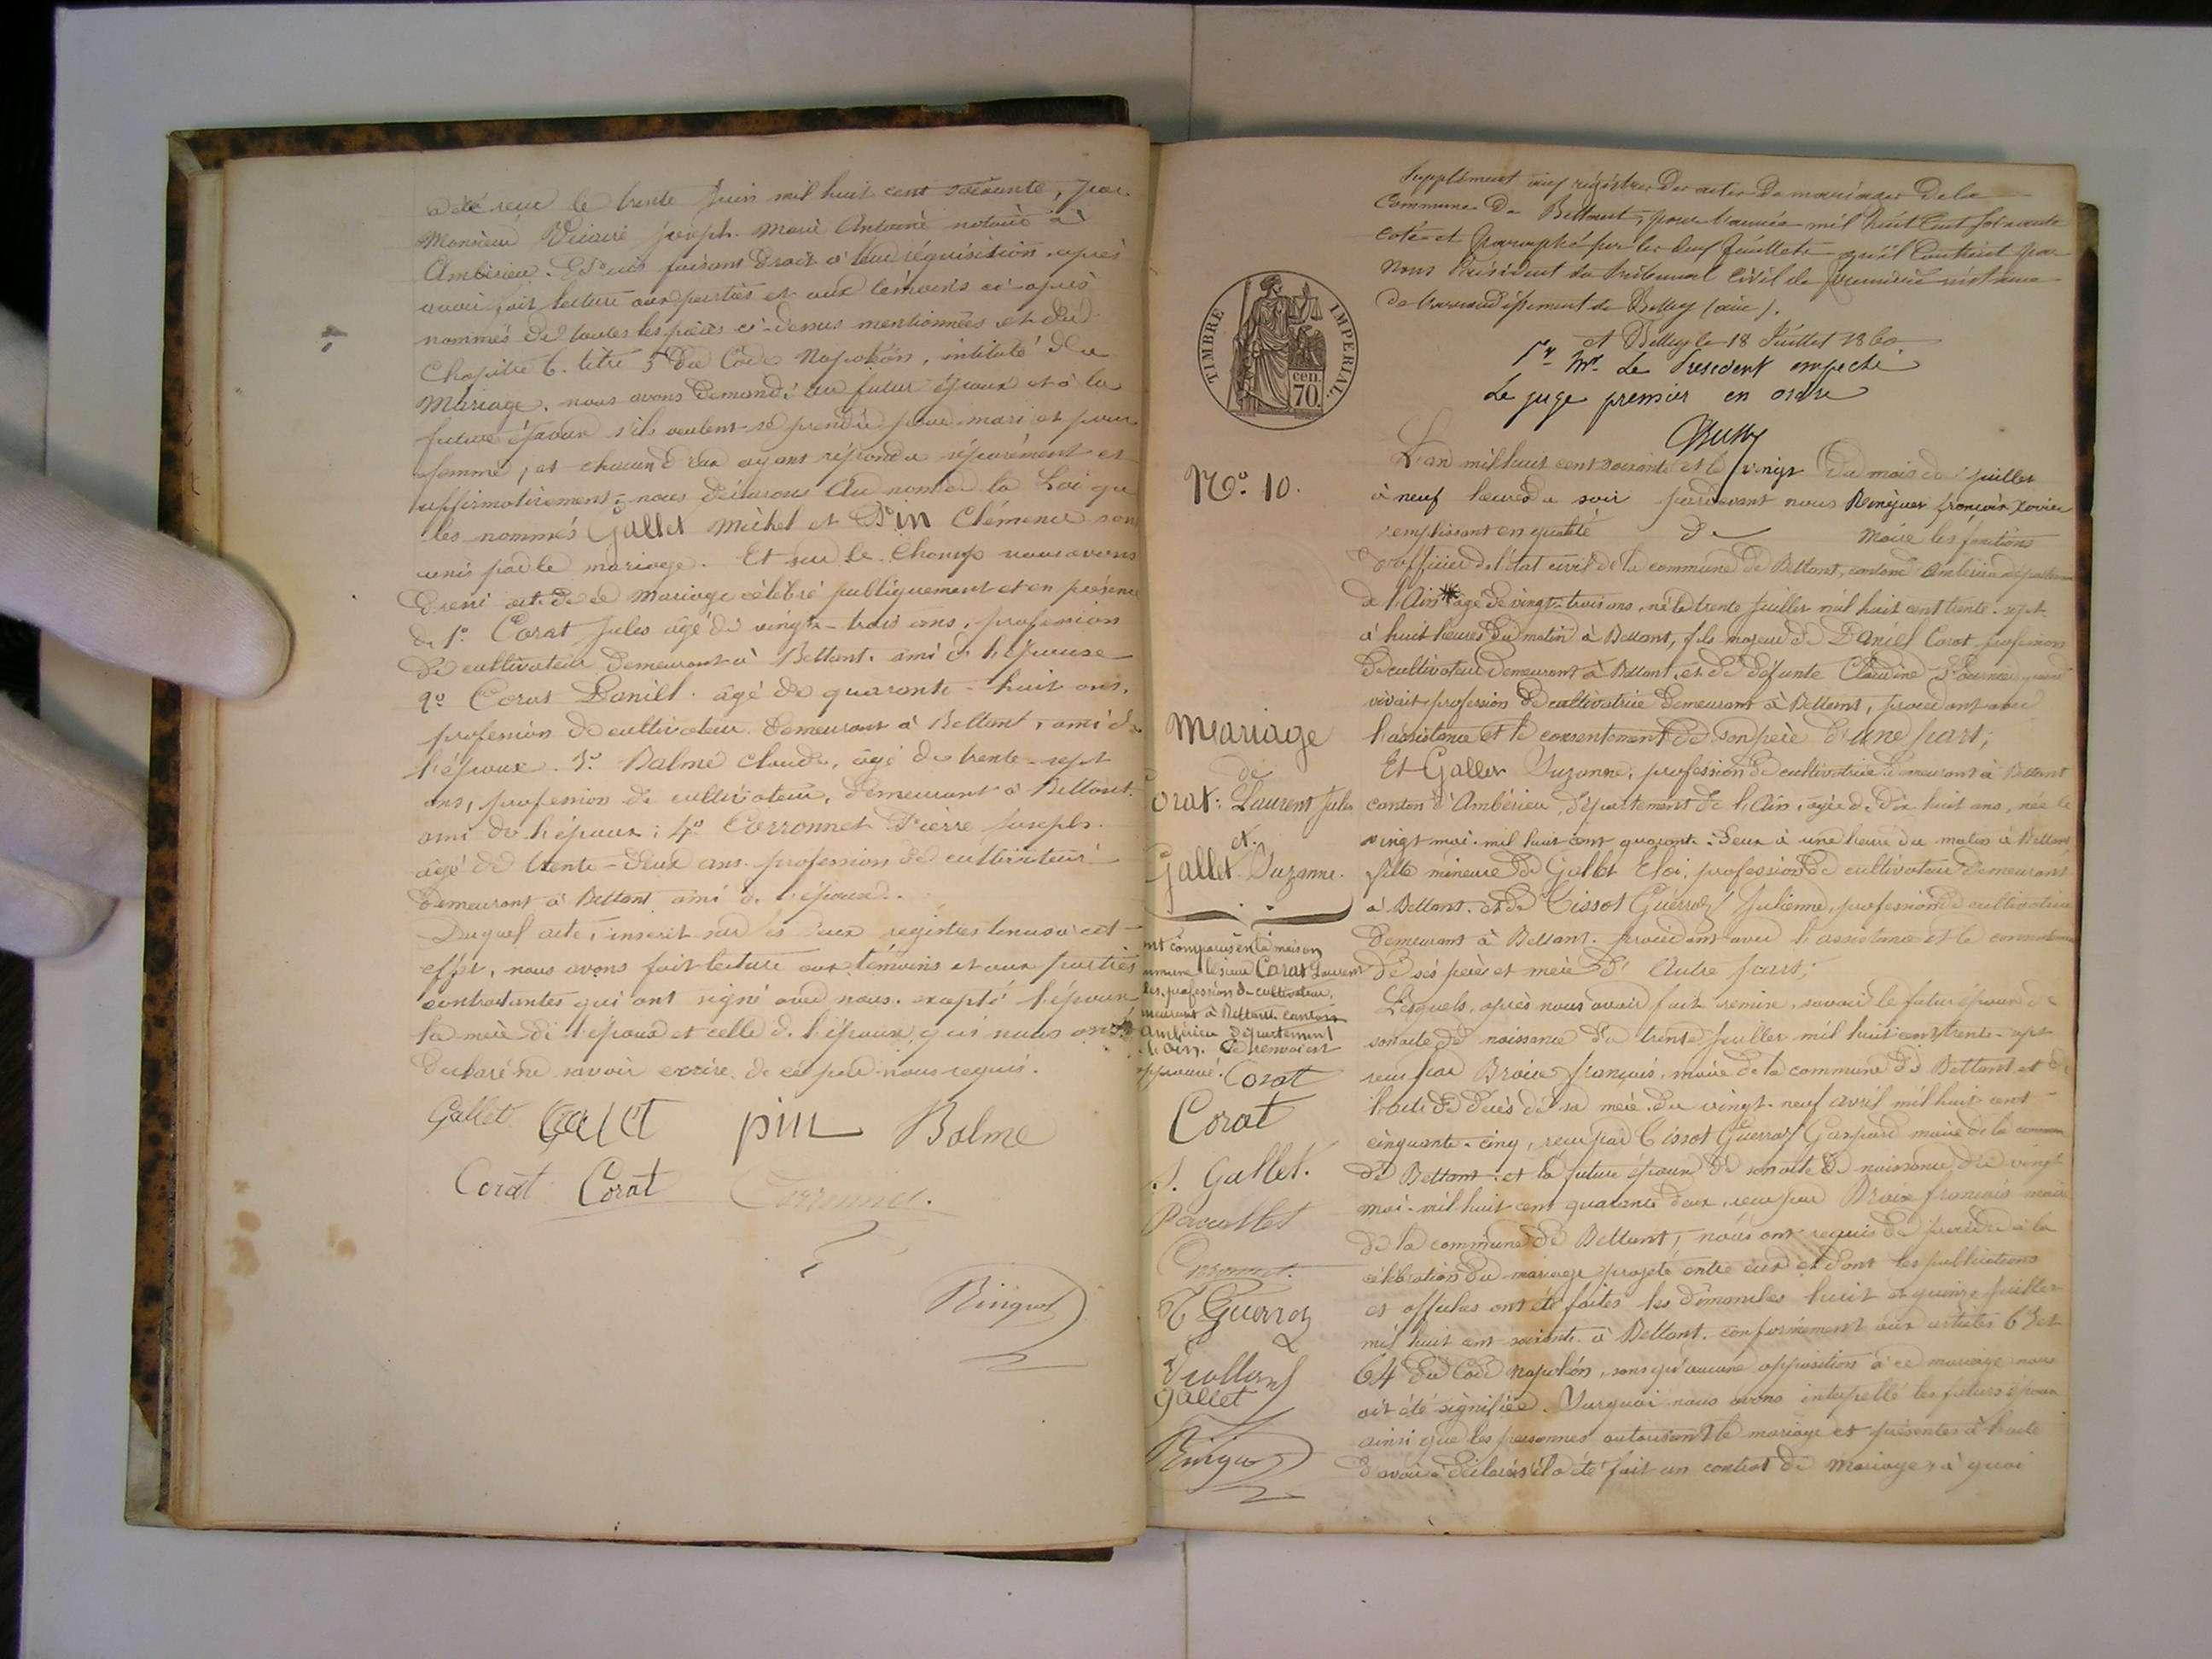 a été reçu le trente juin mil huit cent soixante, par
Monsieur Vicaire joseph Marie Antoine notaire à
Ambérieu. Et puis faisant droit à leur réquisition, après
avoir fait lecture aux parties et aux témoins ci-après
nommés de toutes les pièces ci-dessus mentionnées et du
Chapitre 6. titre 5 du Code Napoléon, intitulé du
Mariage, nous avons demandé au futur époux et à la
future épouse s'ils veulent se prendre pour mari et pour
femme, et chacun d'eux ayant répondu séparément et
affirmativement, nous déclarons Au nom de la Loi que
les nommés Gallet Michel et Pin Clémence sont
unis par le mariage. Et sur le champ nous avons
dressé acte de ce mariage célébré publiquement et en présence
de 1º Corat Jules âgé de vingt-trois ans, profession
de cultivateur demeurant à Bettant, ami de l'épouse
2º Corat Daniel âgé de quarante-huit ans,
profession de cultivateur demeurant à Bettant, ami de
l'époux. 3º Balme Claude, âgé de trente-sept
ans, profession de cultivateur, demeurant à Bettant
ami de l'époux; 4º Corronnet Pierre joseph
âgé de trente-deux ans profession de cultivateur
demeurant à Bettant ami de l'époux.
Duquel acte, inscrit sur les deux registres tenus à cet
effet, nous avons fait lecture aux témoins et aux parties
contractantes qui ont signé avec nous, excepté l'épouse
la mère de l'époux et celle de l'épouse, qui nous ont
déclaré ne savoir écrire de ce par nous requis.
Gallet Gallet pin Balme
Corat Corat Corronnet
Ringuet
Supplément aux régistres des actes de mariages de la
Commune de Bettant, pour l'année mil huit cent soixante
coté et paraphé par les deux feuillets qu'il contient par
Nous Président du tribunal Civil de première instance
de l'arrondissement de Belley (ain).
A Belley le 18 Juillet 1860
Pr Mr. Le President empeché
Le juge premier en ordre
TIMBRE IMPERIAL.
cen.
70.
Nº. 10.
L'an mil huit cent soixante et le vingt du mois de juillet
à neuf heures du soir pardevant nous Renguet françois Xavier
remplissant en qualité de Maire les fonctions
d'officier de l'état civil de la commune de Bettant, canton d'Ambérieu département
de l'Ain * âgé de vingt-trois ans, né le trente juillet mil huit cent trente-sept
à huit heures du matin à Bettant, fils majeur de Daniel Corat, profession
de cultivateur demeurant à Bettant, et de défunte Claudine quand
vivait profession de cultivatrice demeurant à Bettant, procédant avec
l'assistance et le consentement de son père d'une part;
Et Gallet Suzanne, profession de cultivatrice demeurant à Bettant
canton d'Ambérieu, département de l'Ain, âgée de dix huit ans, née le
vingt mai mil huit cent quarante-deux à une heure du matin à Bettant
fille mineure de Gallet Eloi, profession de cultivateur demeurant
à Bettant, et de Tissot Guerraz Julienne, profession de cultivatrice
demeurant à Bettant, procédant avec l'assistance et le consentement
de ses père et mère d'Autre part;
Lesquels, après nous avoir fait remise, savoir le futur époux de
son acte de naissance du trente juillet mil huit cent trente-sept
reçu par Broise françois, maire de la commune de Bettant et de
l'acte de décès de sa mère du vingt-neuf avril mil huit cent
cinquante-cinq, reçu par Tissot Guerraz Gaspard maire de la commune
de Bettant et la future épouse de son acte de naissance du vingt
mai mil huit cent quarante deux, reçu par Broise françois maire
de la commune de Bettant, nous ont requis de procéder à la
célébration du mariage projeté entre eux et dont les publications
et affiches ont été faites les dimanches huit et quinze juillet
mil huit cent soixante à Bettant, conformément aux articles 63 et
64 du Code Napoléon, sans qu'aucune opposition à ce mariage nous
ait été signifiée. Surquoi nous avons interpellé les futurs époux
ainsi que les personnes autorisant le mariage et présentes à l'acte
d'avoir à déclarer s'il a été fait un contrat de Mariage, à quoi
Mariage
de
Corat, Laurent Jules
et
Gallet Suzanne.
ont comparus en la maison
commune le sieur Corat Laurent
Jules, profession de cultivateur,
demeurant à Bettant canton
Ambérieu département
de l'Ain. Ce renvoi est
approuvé. Corat
Corat
S. Gallet.
Pacallet
Corronnet.
T Guerraz
Gallet
Ringuet